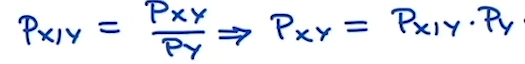 P_{X|Y} = \frac{P_{XY}}{P_Y} ⇒ P_{XY} = P_{X|Y} · P_Y.